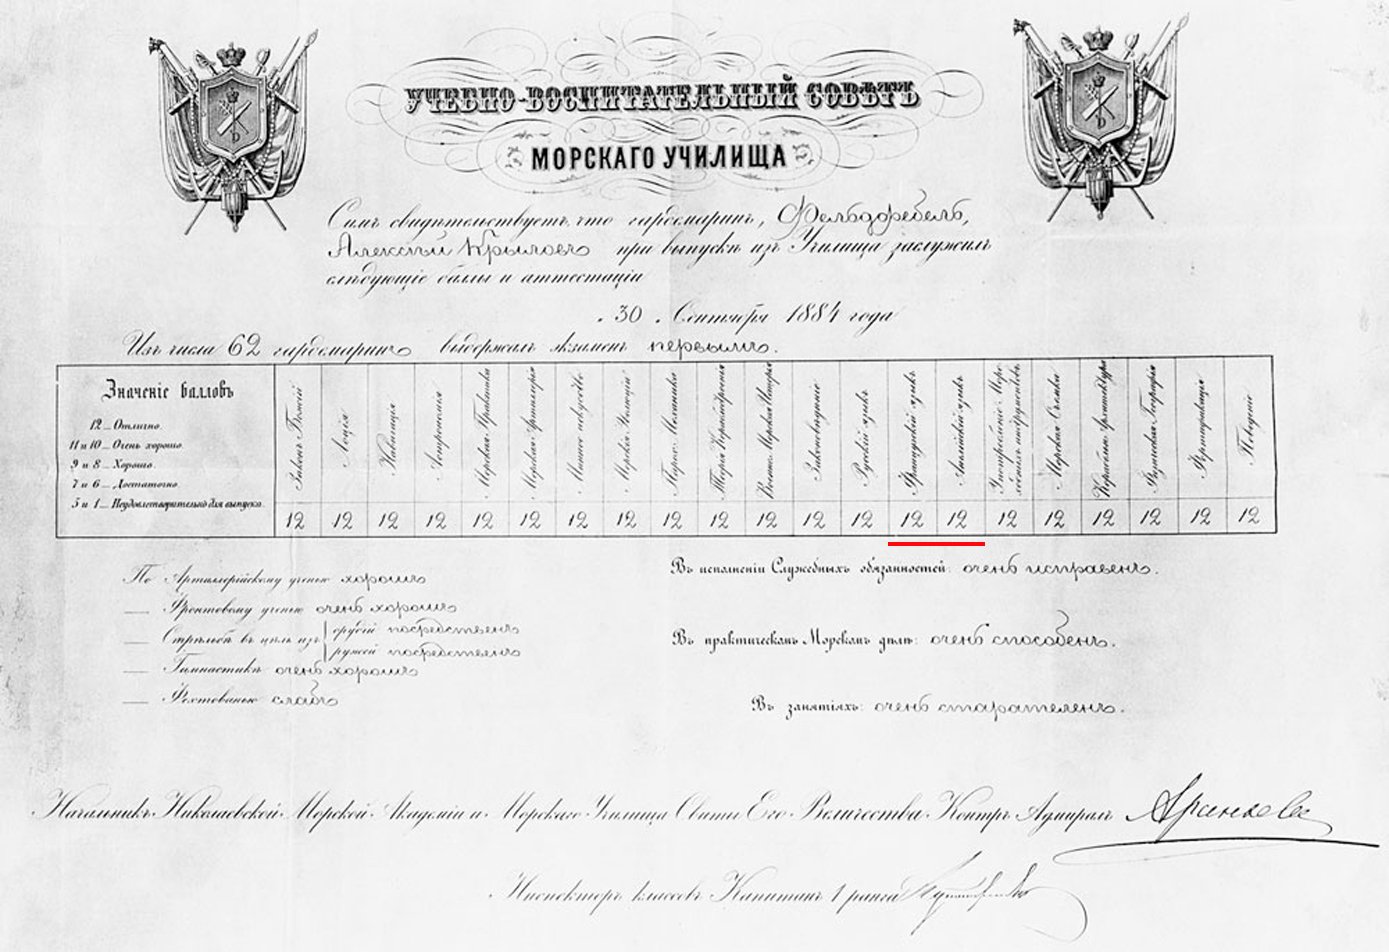 УЧЕБНО-ВОСПИТАТЕЛЬНЫЙ СОВѢТЪ
МОРСКАГО УЧИЛИЩА
Симъ свидѣтельствуетъ, что гардемаринъ, Фельдфебель,
Алексѣй Крыловъ при выпускѣ изъ Училища заслужилъ
слѣдующіе баллы и аттестаціи
„30„ Сентября 1884 года
Изъ числа 62 гардемаринъ выдержалъ экзаменъ первымъ.
Значеніе балловъ
12 — Отлично.
11 и 10 — Очень хорошо.
9 и 8 — Хорошо.
7 и 6 — Достаточно.
5 и 1 — Неудовлетворительно для выпуска.
Законъ Божій
Лоція
Навигація
Астрономія
Морская Практика
Морская Артиллерія
Минное искусство
Морская Эволюція
Теорія Кораблестроенія
Военно-Морская Исторія
Законовѣдѣніе
Русскій языкъ
Французскій языкъ
Англійскій языкъ
Морская Съемка
Корабельн. Архитектура
Физическая Географія
Фортификація
Поведеніе
12 12 12 12 12 12 12 12 12 12 12 12 12 12 12 12 12 12 12 12 12
По Артиллерійскому ученью хорошъ
— Фронтовому ученью очень хорошъ
— Стрѣльбѣ въ цѣль изъ орудій посредственъ
ружей посредственъ
— Гимнастикѣ очень хорошъ
— Фехтованью слабъ
Въ исполненіи Служебныхъ обязанностей: очень исправенъ.
Въ практическомъ Морскомъ дѣлѣ: очень способенъ.
Въ занятіяхъ: очень старателенъ.
Начальникъ Николаевской Морской Академіи и Морскаго Училища Свиты Его Величества Контръ Адмиралъ Арсеньевъ
Инспекторъ классовъ Капитанъ 1 ранга